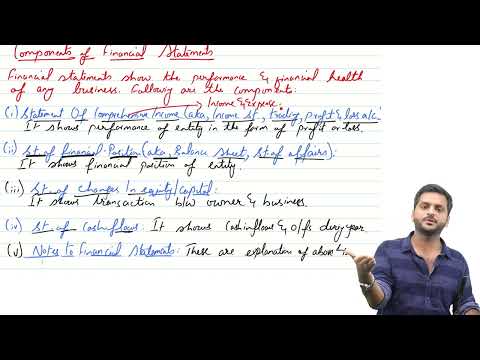 Components of Financial Statements
Financial statements show the performance & financial health
of any business. Following are the components:
→ Income & Expense
(i) Statement Of Comprehensive Income (aka, Income st, Trading, profit & loss a/c)
It shows performance of entity in the form of profit or loss.
(ii) St. of financial Position (aka, Balance Sheet, St. of affairs):
It shows financial position of entity.
(iii) St. of changes In equity/capital:
It shows transaction b/w owner & business.
(iv) St. of cashflows: It shows cash inflows & o/fs during year
(v) Notes to Financial Statements: These are explanation of above